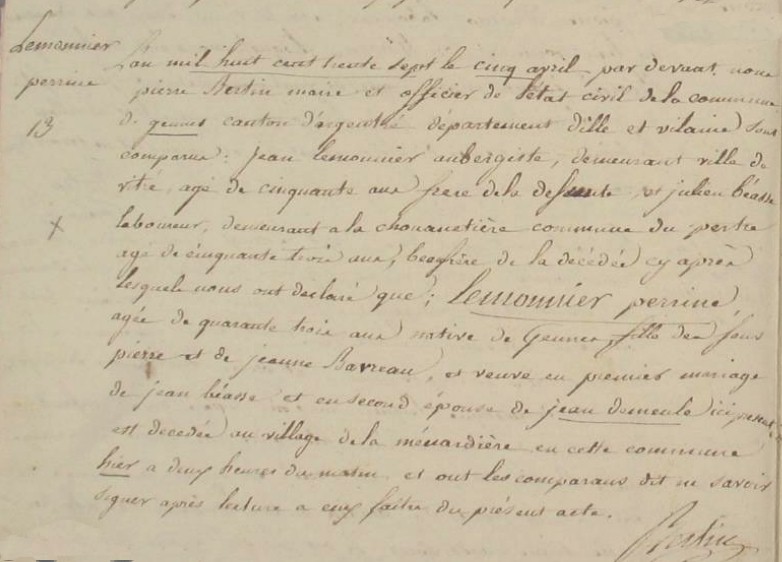 Lemonnier
perrine
13
L'an mil huit cent trente sept le cinq avril par devant nous
pierre Bertin maire et officier de l'état civil de la commune
de gennes canton d'argentré département d'ille et vilaine sont
comparus: jean lemonnier aubergiste, demeurant ville de
vitré, agé de cinquante ans frere de la defunte, et julien béasse
laboureur, demeurant a la chouanetière commune du pertre
agé de cinquante trois ans, beaufrère de la décédée cy après
lesquels nous ont declaré que; lemonnier perrine,
agée de quarante trois ans native de Gennes, fille des feus
pierre et de jeanne Barreau, et veuve en premier mariage
de jean béasse et en second épouse de jean demeule ici présent
est decedée au village de la ménardière en cette commune
hier a deux heures du matin, et ont les comparans dit ne savoir
signer après lecture a eux faite du présent acte.
Bertin